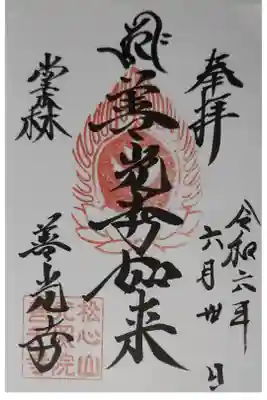 奉拝
令和六年
六月卅日
善光寺如来
堂森
善光寺
松心山